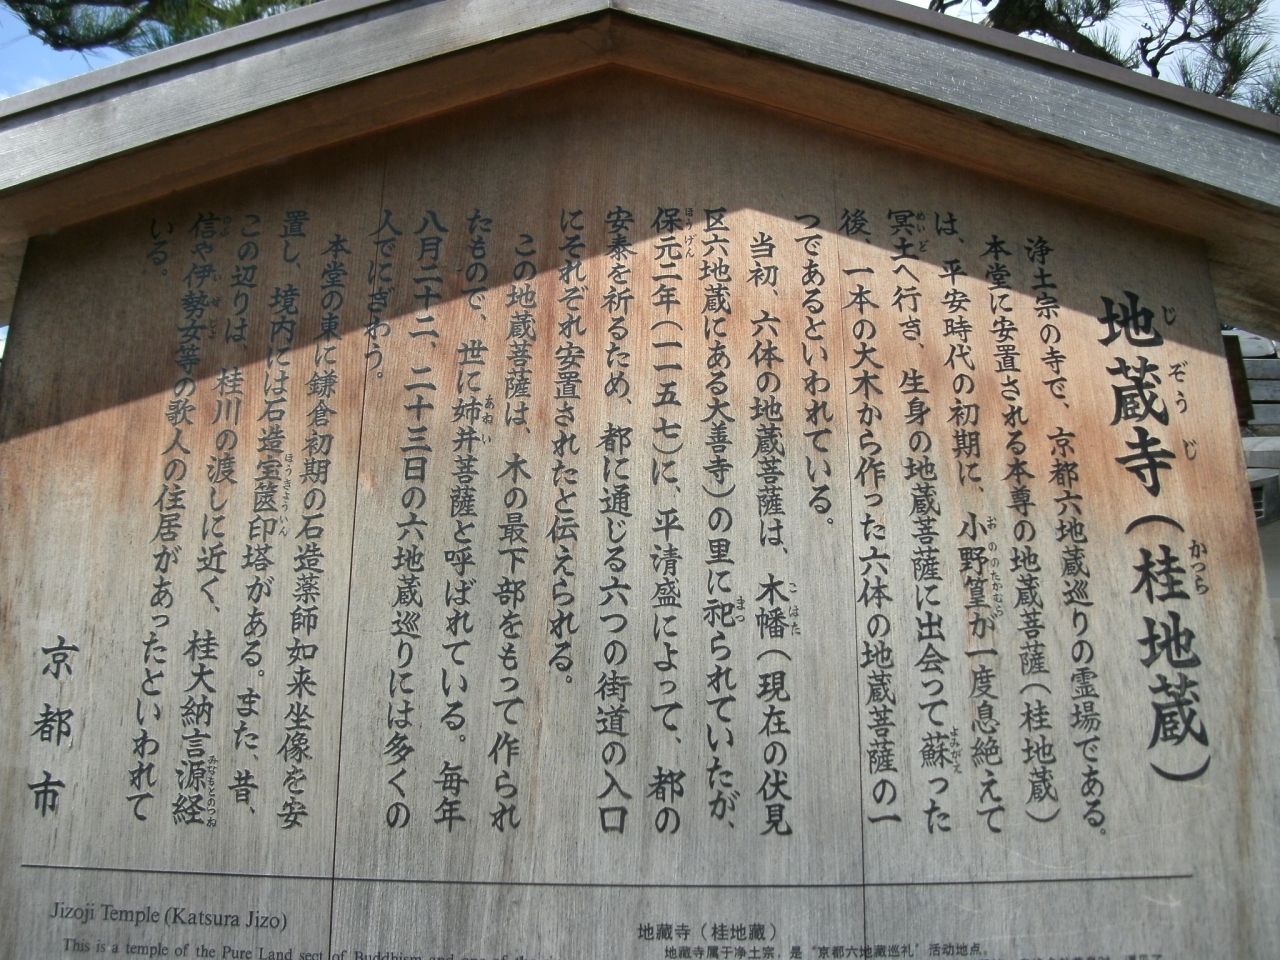 地蔵寺（桂地蔵）
浄土宗の寺で、京都六地蔵巡りの霊場である。
本堂に安置される本尊の地蔵菩薩（桂地蔵）
は、平安時代の初期に、小野篁が一度息絶えて
冥土へ行き、生身の地蔵菩薩に出会って蘇った
後、一本の大木から作った六体の地蔵菩薩の一
つであるといわれている。
当初、六体の地蔵菩薩は、木幡（現在の伏見
区六地蔵にある大善寺）の里に祀られていたが、
保元二年（一一五七）に、平清盛によって、都の
安泰を祈るため、都に通じる六つの街道の入口
にそれぞれ安置されたと伝えられる。
この地蔵菩薩は、木の最下部をもって作られ
たもので、世に姉井菩薩と呼ばれている。毎年
八月二十二、二十三日の六地蔵巡りには多くの
人でにぎわう。
本堂の東に鎌倉初期の石造薬師如来坐像を安
置し、境内には石造宝篋印塔がある。また、昔、
この辺りは、桂川の渡しに近く、桂大納言源経
信や伊勢女等の歌人の住居があったといわれて
いる。
京都市
Jizoji Temple (Katsura Jizo)
This is a temple of the Pure Land sect of Buddhism and one of the
地藏寺（桂地藏）
地藏寺属于净土宗，是“京都六地藏巡礼”活动地点，